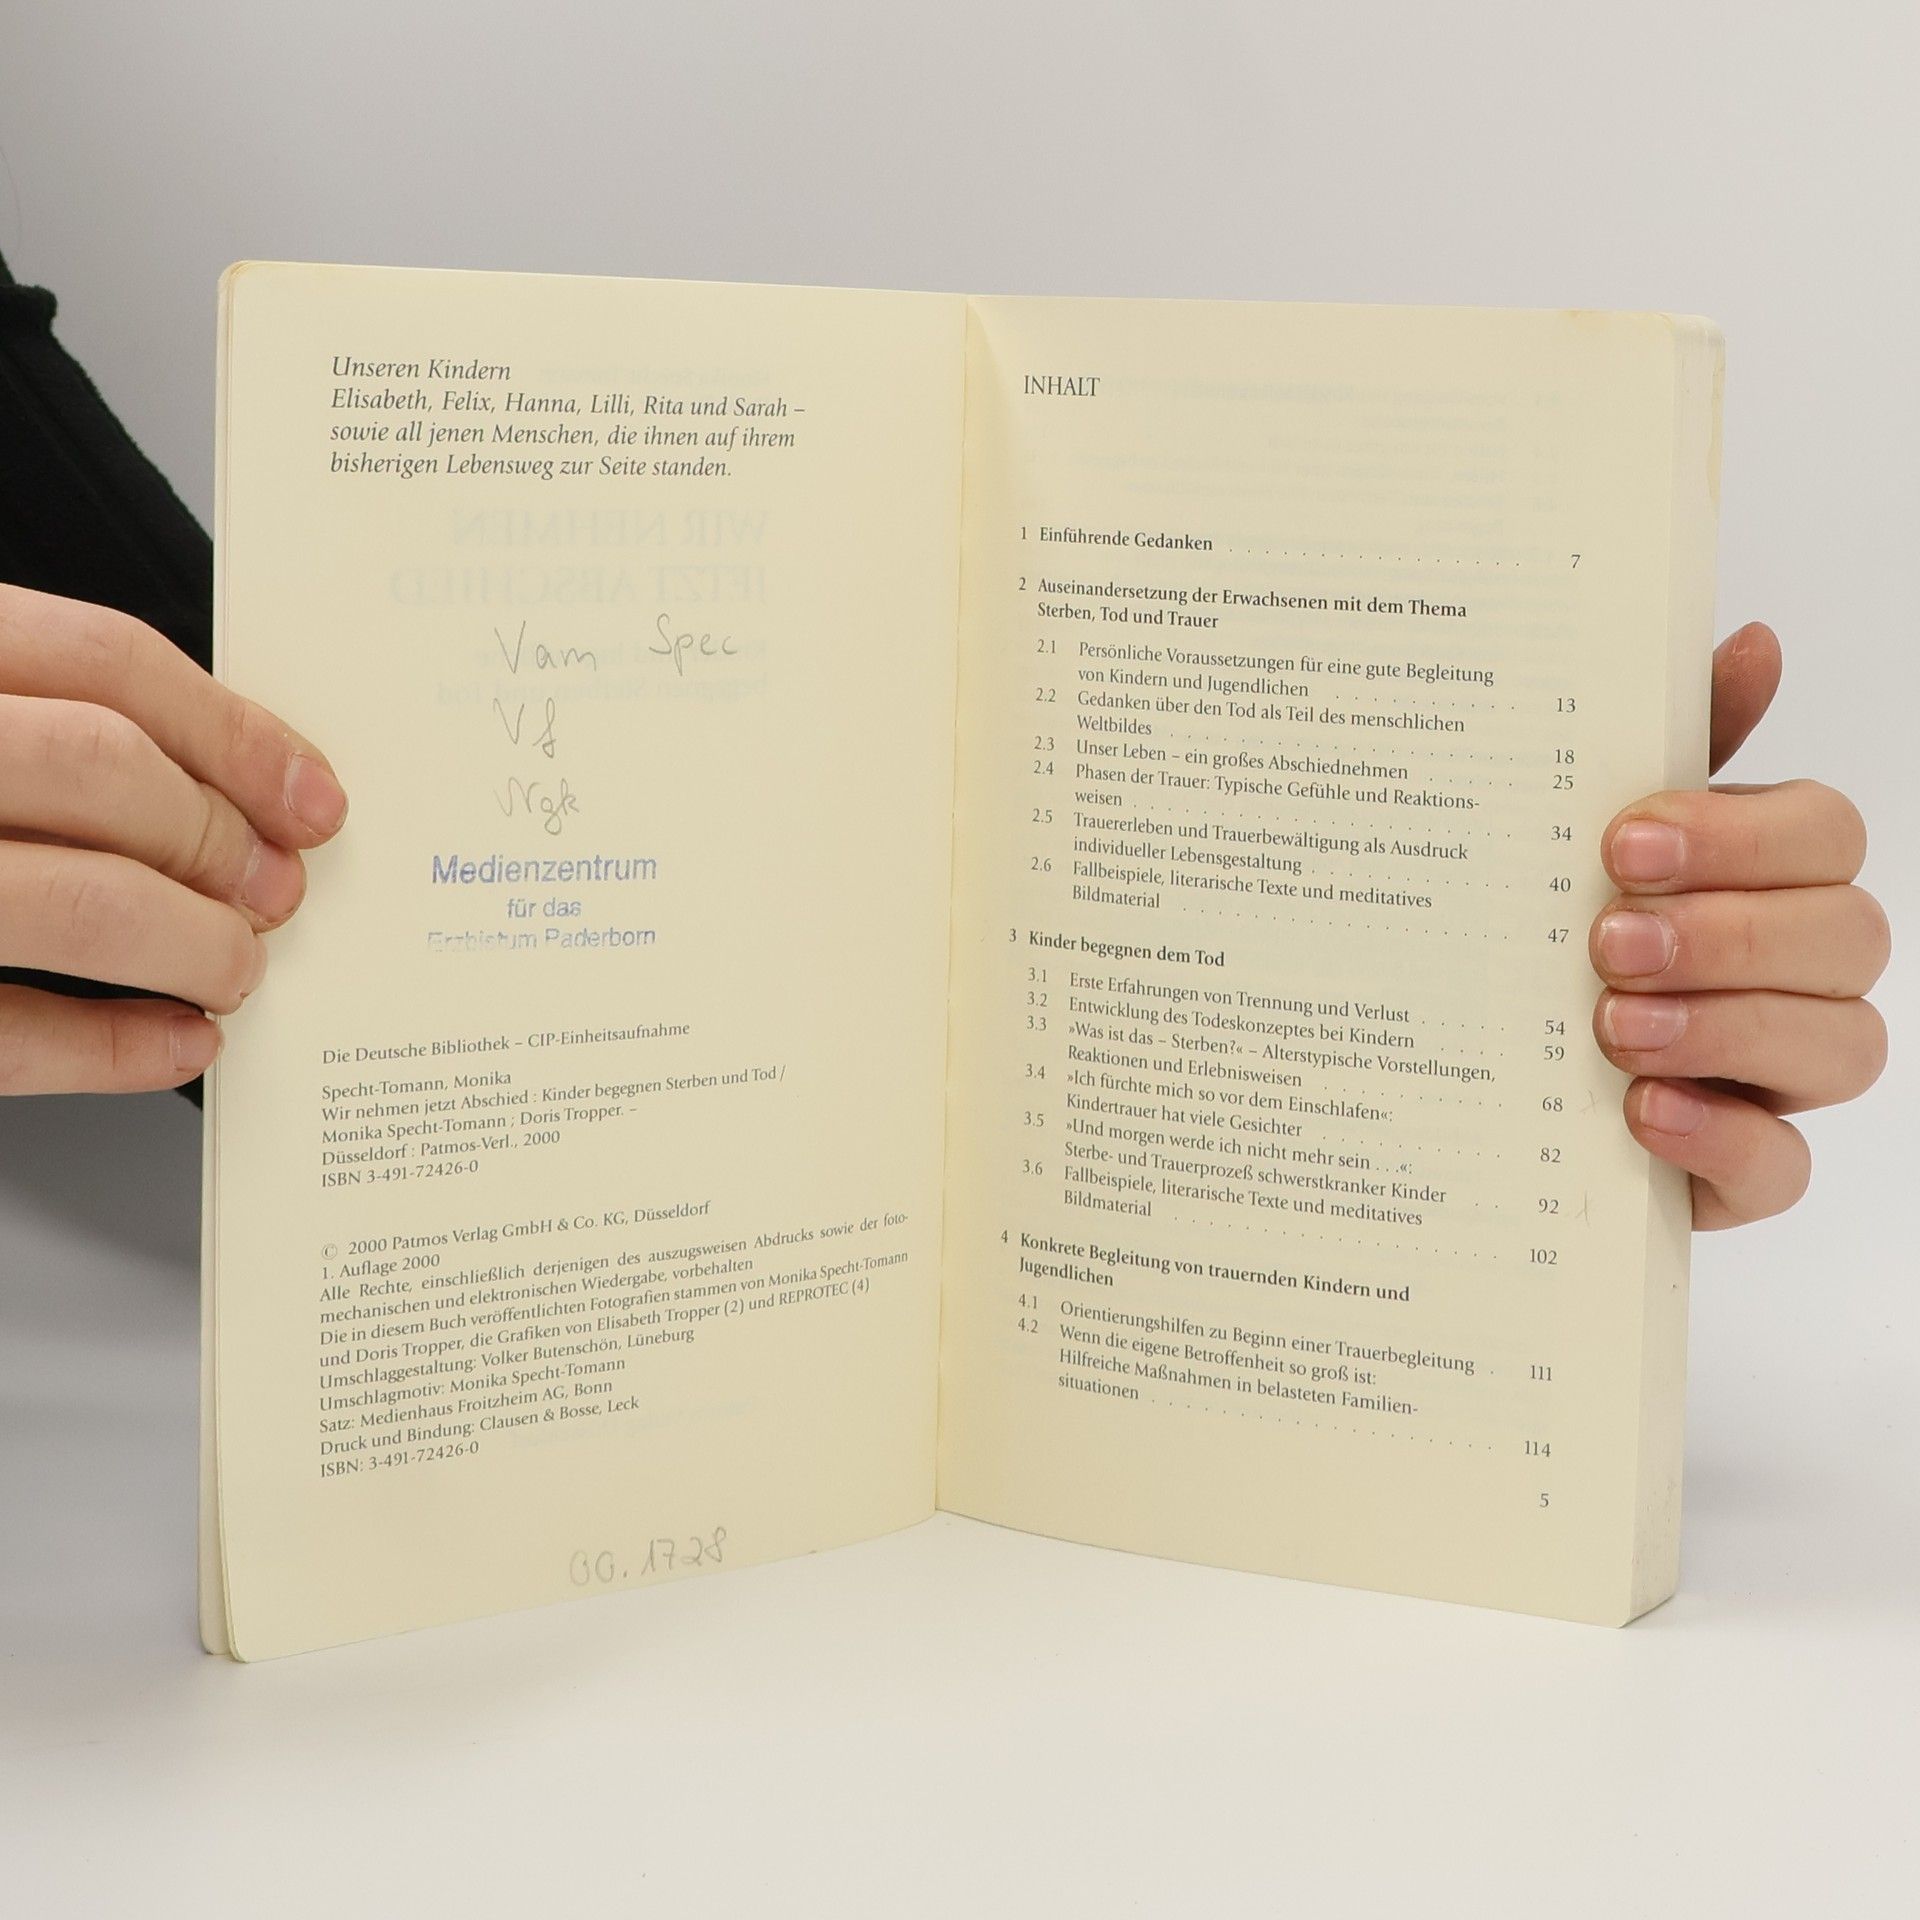 Unseren Kindern
Elisabeth, Felix, Hanna, Lilli, Rita und Sarah –
sowie all jenen Menschen, die ihnen auf ihrem
bisherigen Lebensweg zur Seite standen.
Vam Spec
Medienzentrum
für das
Erzbistum Paderborn
Die Deutsche Bibliothek – CIP-Einheitsaufnahme
Specht-Tomann, Monika
Wir nehmen jetzt Abschied : Kinder begegnen Sterben und Tod /
Monika Specht-Tomann ; Doris Tropper. –
Düsseldorf : Patmos-Verl., 2000
ISBN 3-491-72426-0
© 2000 Patmos Verlag GmbH & Co. KG, Düsseldorf
1. Auflage 2000
Alle Rechte, einschließlich derjenigen des auszugsweisen Abdrucks sowie der foto-
mechanischen und elektronischen Wiedergabe, vorbehalten
Die in diesem Buch veröffentlichten Fotografien stammen von Monika Specht-Tomann
und Doris Tropper, die Grafiken von Elisabeth Tropper (2) und REPROTEC (4)
Umschlaggestaltung: Volker Butenschön, Lüneburg
Umschlagmotiv: Monika Specht-Tomann
Satz: Medienhaus Froitzheim AG, Bonn
Druck und Bindung: Clausen & Bosse, Leck
ISBN: 3-491-72426-0
00.1728
INHALT
1 Einführende Gedanken . . . . . . . . . . . . . . . 7
2 Auseinandersetzung der Erwachsenen mit dem Thema
Sterben, Tod und Trauer
2.1 Persönliche Voraussetzungen für eine gute Begleitung
von Kindern und Jugendlichen . . . . . . . . . 13
2.2 Gedanken über den Tod als Teil des menschlichen
Weltbildes . . . . . . . . . . . . . . . . . . 18
2.3 Unser Leben – ein großes Abschiednehmen . . . . . 25
2.4 Phasen der Trauer: Typische Gefühle und Reaktions-
weisen . . . . . . . . . . . . . . . . . . . 34
2.5 Trauererleben und Trauerbewältigung als Ausdruck
individueller Lebensgestaltung . . . . . . . . . . . 40
2.6 Fallbeispiele, literarische Texte und meditatives
Bildmaterial . . . . . . . . . . . . . . . . . 47
3 Kinder begegnen dem Tod
3.1 Erste Erfahrungen von Trennung und Verlust . . . . . 54
3.2 Entwicklung des Todeskonzeptes bei Kindern . . . . 59
3.3 »Was ist das – Sterben?« – Alterstypische Vorstellungen,
Reaktionen und Erlebnisweisen . . . . . . . . . 68
3.4 »Ich fürchte mich so vor dem Einschlafen«:
Kindertrauer hat viele Gesichter . . . . . . . . . . 82
3.5 »Und morgen werde ich nicht mehr sein . . .«:
Sterbe- und Trauerprozeß schwerstkranker Kinder . . 92
3.6 Fallbeispiele, literarische Texte und meditatives
Bildmaterial . . . . . . . . . . . . . . . . . 102
4 Konkrete Begleitung von trauernden Kindern und
Jugendlichen
4.1 Orientierungshilfen zu Beginn einer Trauerbegleitung . 111
4.2 Wenn die eigene Betroffenheit so groß ist:
Hilfreiche Maßnahmen in belasteten Familien-
situationen . . . . . . . . . . . . . . . . . . 114
5